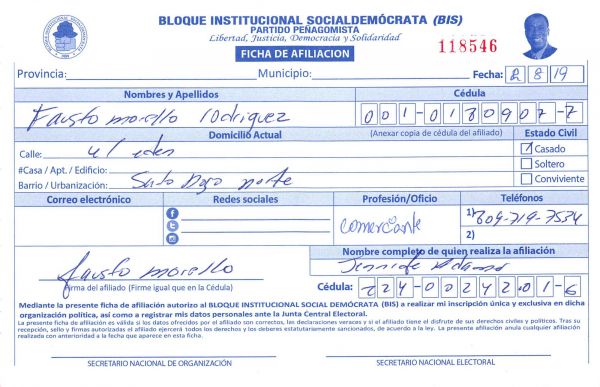 BLOQUE INSTITUCIONAL SOCIALDEMÓCRATA (BIS)
PARTIDO PEÑAGOMISTA
Libertad, Justicia, Democracia y Solidaridad
FICHA DE AFILIACION
118546
Provincia: Municipio: Fecha: 2 8 19
Nombres y Apellidos Cédula
Fausto morello rodriguez 001-0180907-7
Domicilio Actual (Anexar copia de cédula del afiliado) Estado Civil
Calle: el eden Casado
#Casa / Apt. / Edificio: Soltero
Barrio / Urbanización: Santo Dgo norte Conviviente
Correo electrónico Redes sociales Profesión/Oficio Teléfonos
comerciante 1) 809-719-7534
2)
Nombre completo de quien realiza la afiliación
fausto morello
Firma del afiliado (Firme igual que en la Cédula) Cédula: 224-0024201-6
Mediante la presente ficha de afiliación autorizo al BLOQUE INSTITUCIONAL SOCIAL DEMÓCRATA (BIS) a realizar mi inscripción única y exclusiva en dicha
organización política, así como a registrar mis datos personales ante la Junta Central Electoral.
La presente ficha de afiliación es válida si los datos ofrecidos por el afiliado son correctos, las declaraciones veraces y si el afiliado tiene el disfrute de sus derechos civiles y políticos. Tras su
recepción, sello y firmas autorizadas el afiliado ejercerá todos los derechos y los deberes estatutariamente sancionados, de acuerdo a la ley. La presente afiliación anula cualquier afiliación
realizada con anterioridad a la fecha que aparece en esta ficha.
SECRETARIO NACIONAL DE ORGANIZACIÓN SECRETARIO NACIONAL ELECTORAL